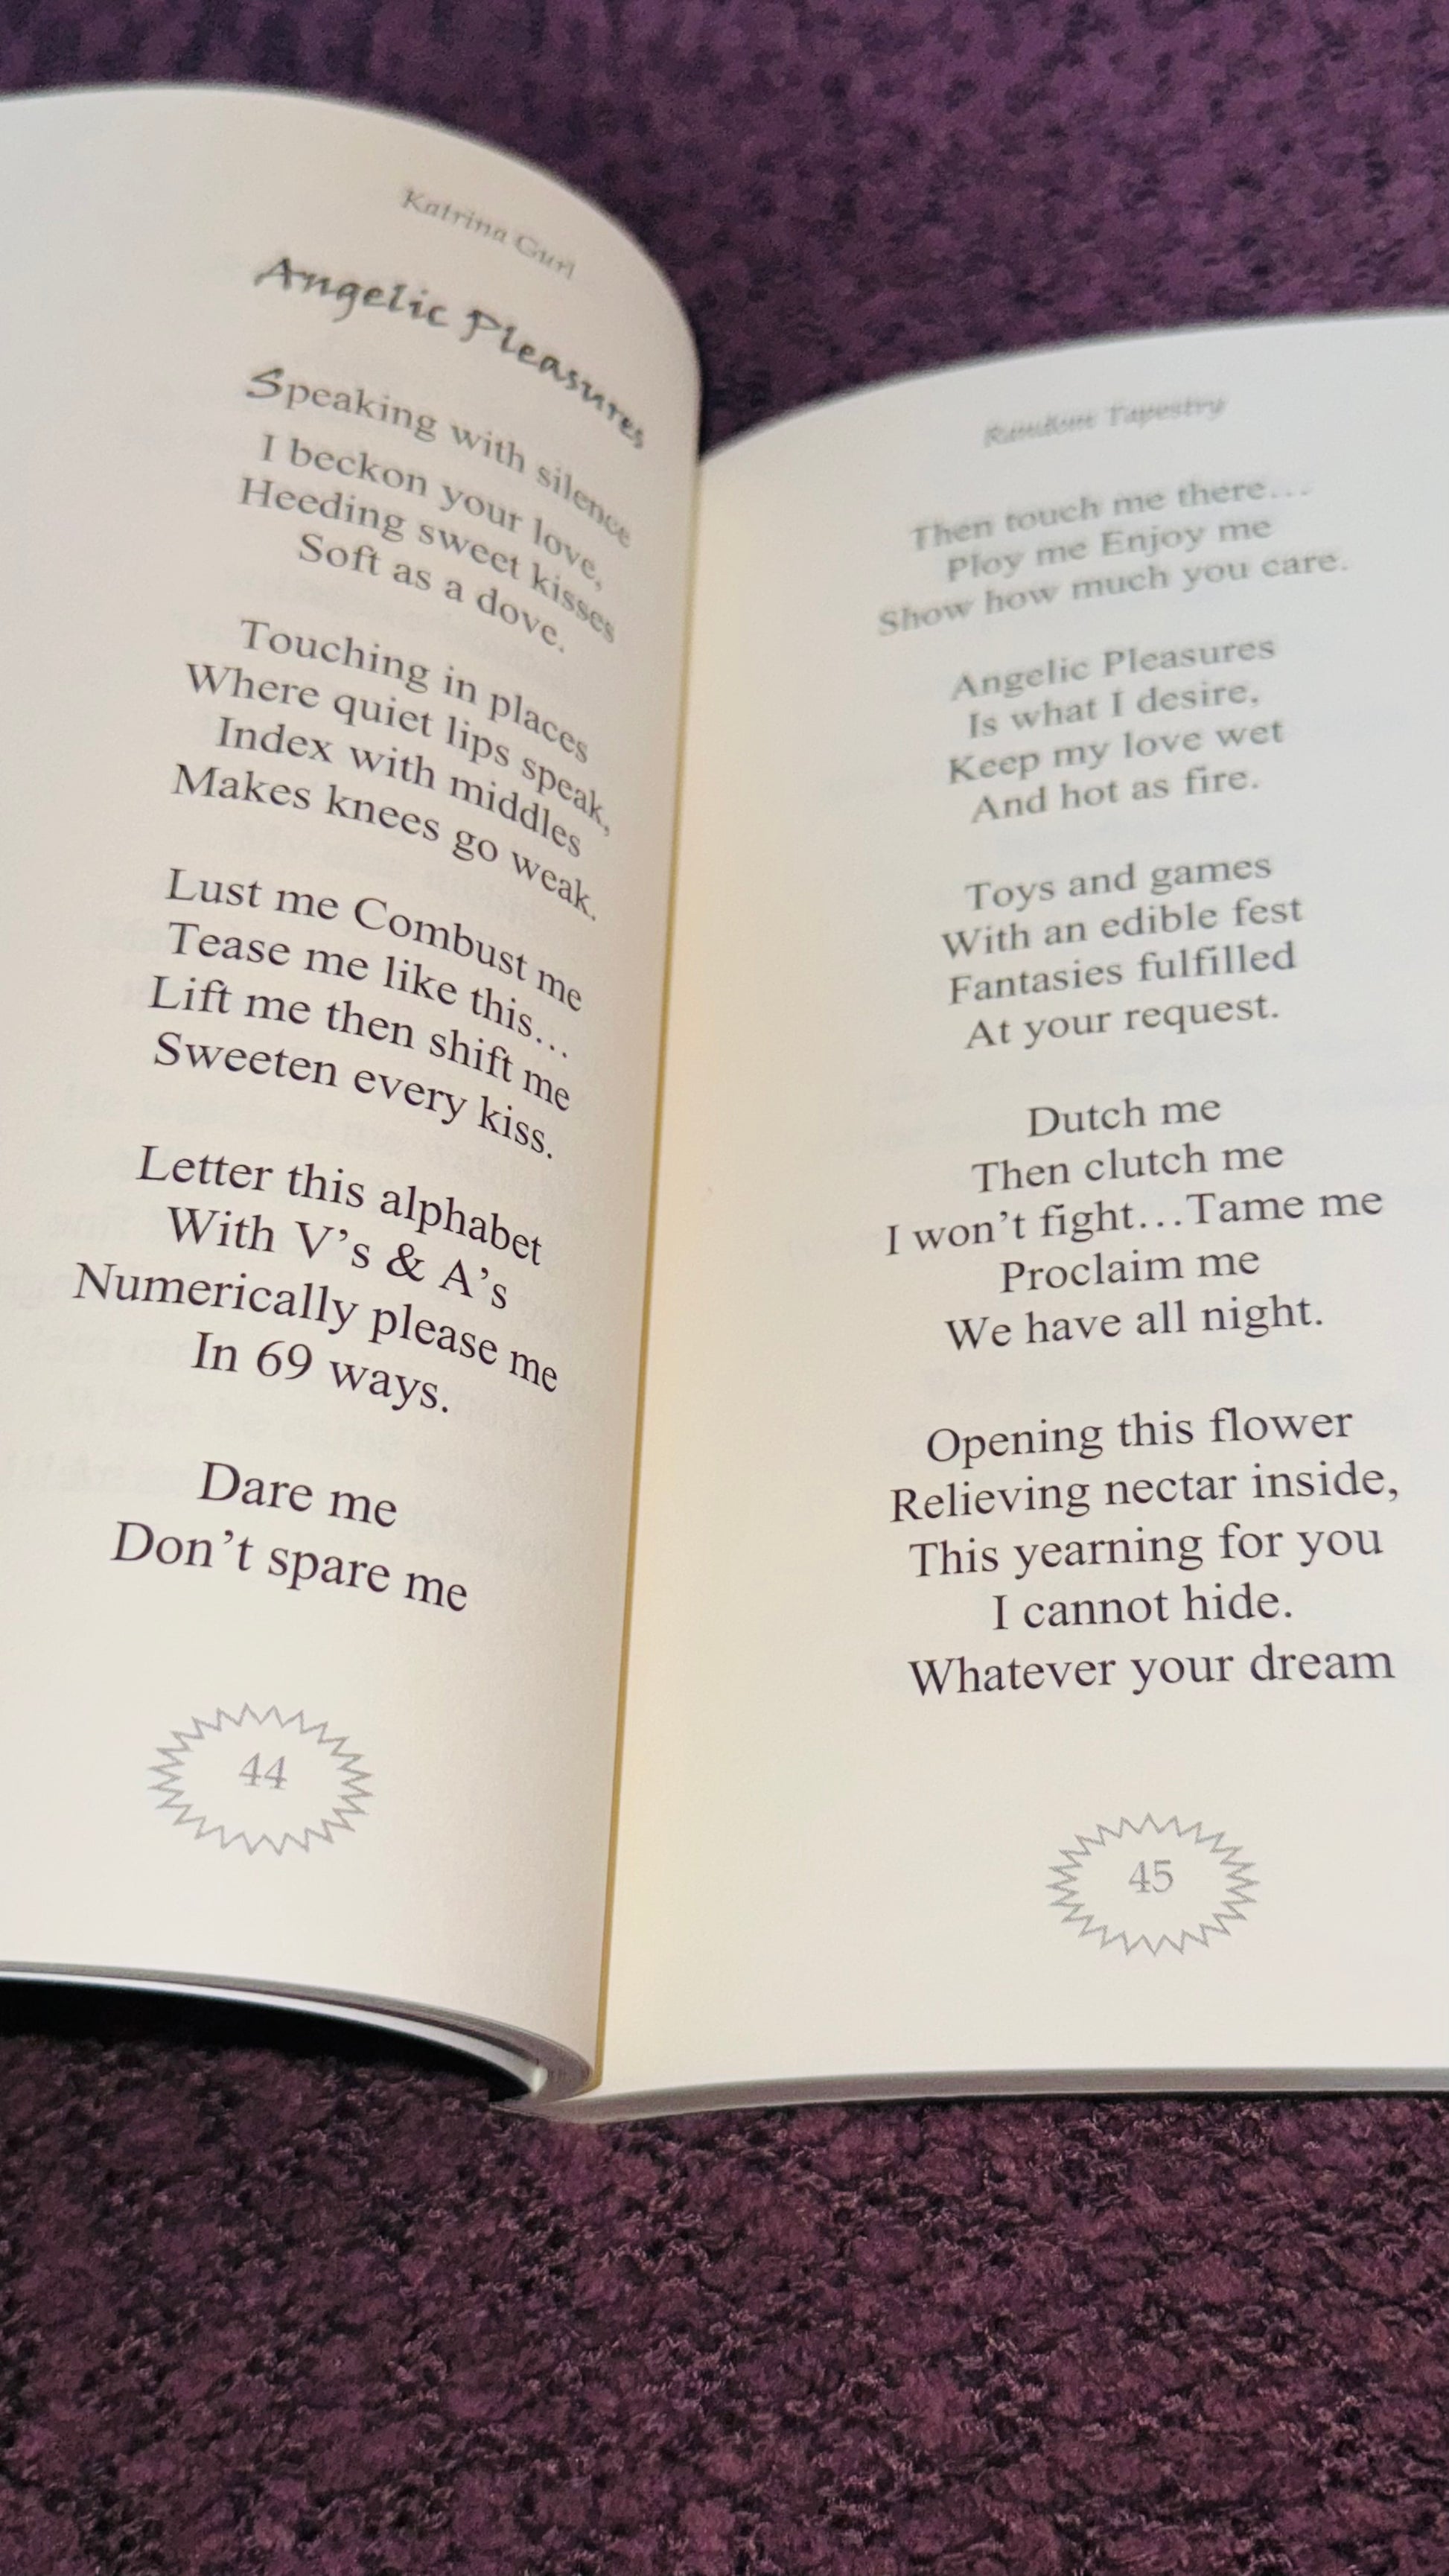 Katrina Gurl
Angelic Pleasures
Speaking with silence
I beckon your love,
Heeding sweet kisses
Soft as a dove.
Touching in places
Where quiet lips speak,
Index with middles
Makes knees go weak.
Lust me Combust me
Tease me like this...
Lift me then shift me
Sweeten every kiss.
Letter this alphabet
With V's & A's
Numerically please me
In 69 ways.
Dare me
Don't spare me
44
Random Tapestry
Then touch me there...
Ploy me Enjoy me
Show how much you care.
Angelic Pleasures
Is what I desire,
Keep my love wet
And hot as fire.
Toys and games
With an edible fest
Fantasies fulfilled
At your request.
Dutch me
Then clutch me
I won't fight...Tame me
Proclaim me
We have all night.
Opening this flower
Relieving nectar inside,
This yearning for you
I cannot hide.
Whatever your dream
45